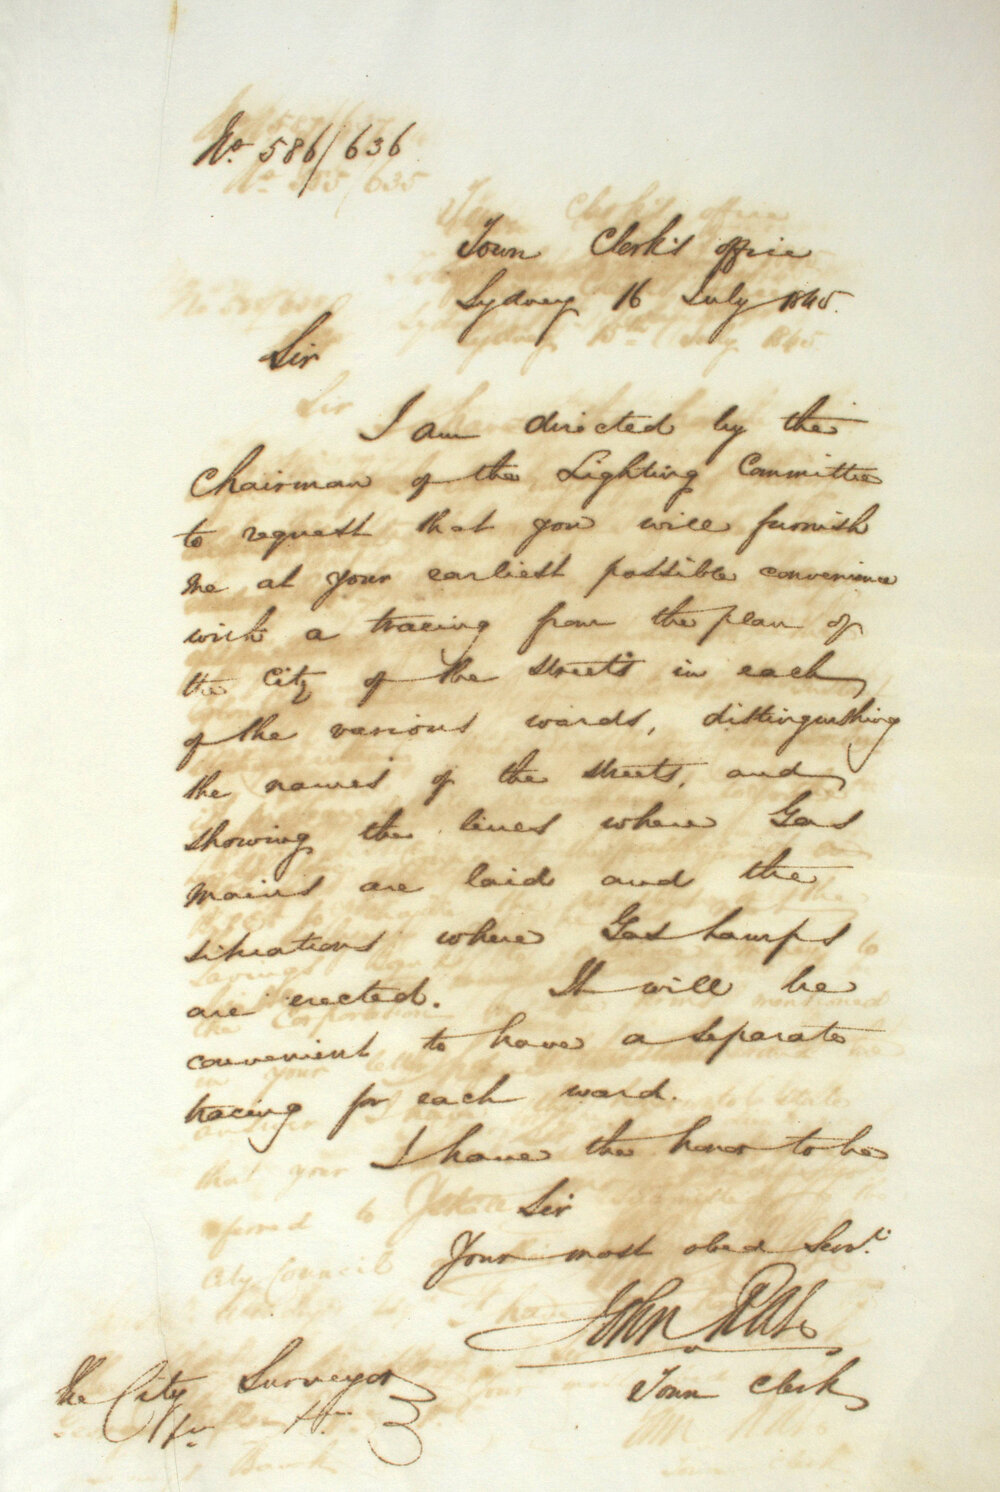 No. 586/636
Town Clerk's office
Sydney 16 July 1845.
Sir
I am directed by the
Chairman of the Lighting Committee
to request that you will furnish
me at your earliest possible convenience
with a tracing from the plan of
the City of the streets in each
of the various wards, distinguishing
the names of the streets, and
showing the lines where Gas
mains are laid and the
situations where Gas Lamps
are erected. It will be
convenient to have a separate
tracing for each ward.
I have the honor to be
Sir
Your most obed Servt.
John
Town Clerk
The City Surveyor